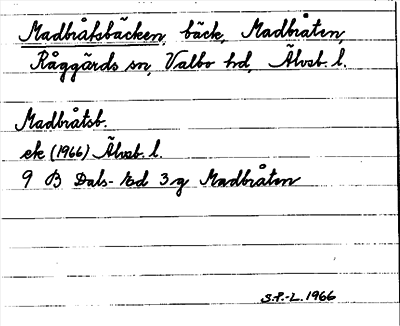 Madbråtsbäcken, bäck, Madbråten,
Råggärds sn, Valbo hd, Älvsb. l.
Madbråtsb.
ek (1966) Älvsb. l.
9 B Dals-Ed 3g Madbråten
S.P.-L. 1966